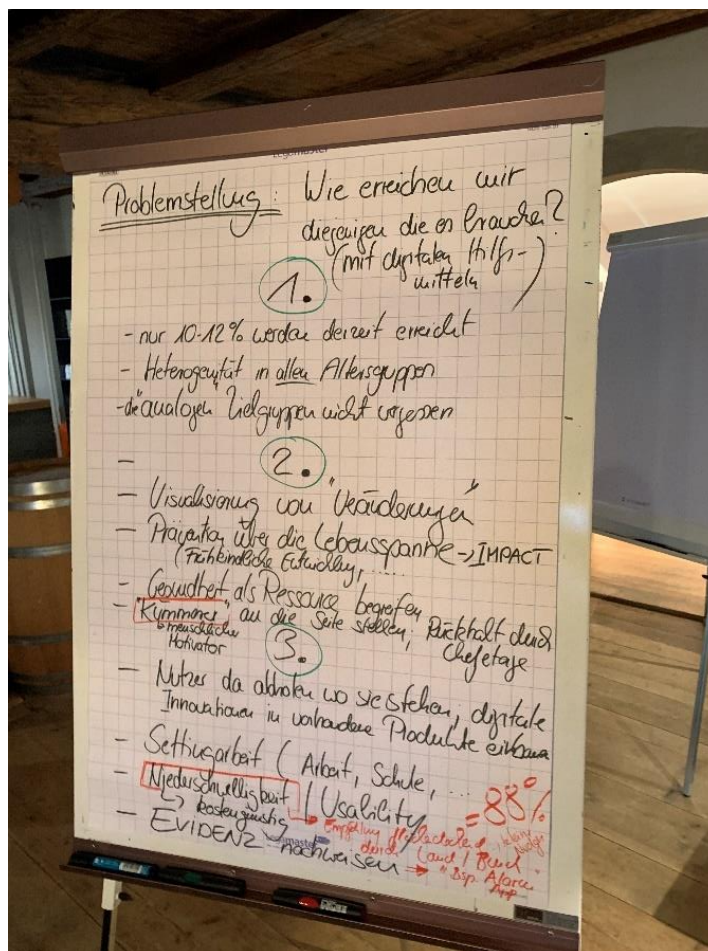 Legamaster
Problemstellung: Wie erreichen wir
diejenigen die es brauchen?
(mit digitalen Hilfs-
mitteln)
1.
- nur 10-12% werden derzeit erreicht
- Heterogenität in allen Altersgruppen
- die "analogen" Zielgruppen nicht vergessen
2.
-
- Visualisierung von "Veränderungen"
- Prävention über die Lebensspanne → IMPACT
(Frühkindliche Entwicklung, .....
- Gesundheit als Ressource begreifen
- "Kümmerer" an die Seite stellen, Rückhalt durch
Chefetage
↳ menschlicher
Motivator
3.
- Nutzer da abholen wo sie stehen, digitale
Innovationen in vorhandene Produkte einbauen
- Settingarbeit (Arbeit, Schule, ...
- Niederschwelligkeit / Usability
↳ kostengünstig
→ Empfehlung flächendeckend
durch Land / Bund
= 88%
- EVIDENZ nachweisen
→ "Bsp. Alarm
App